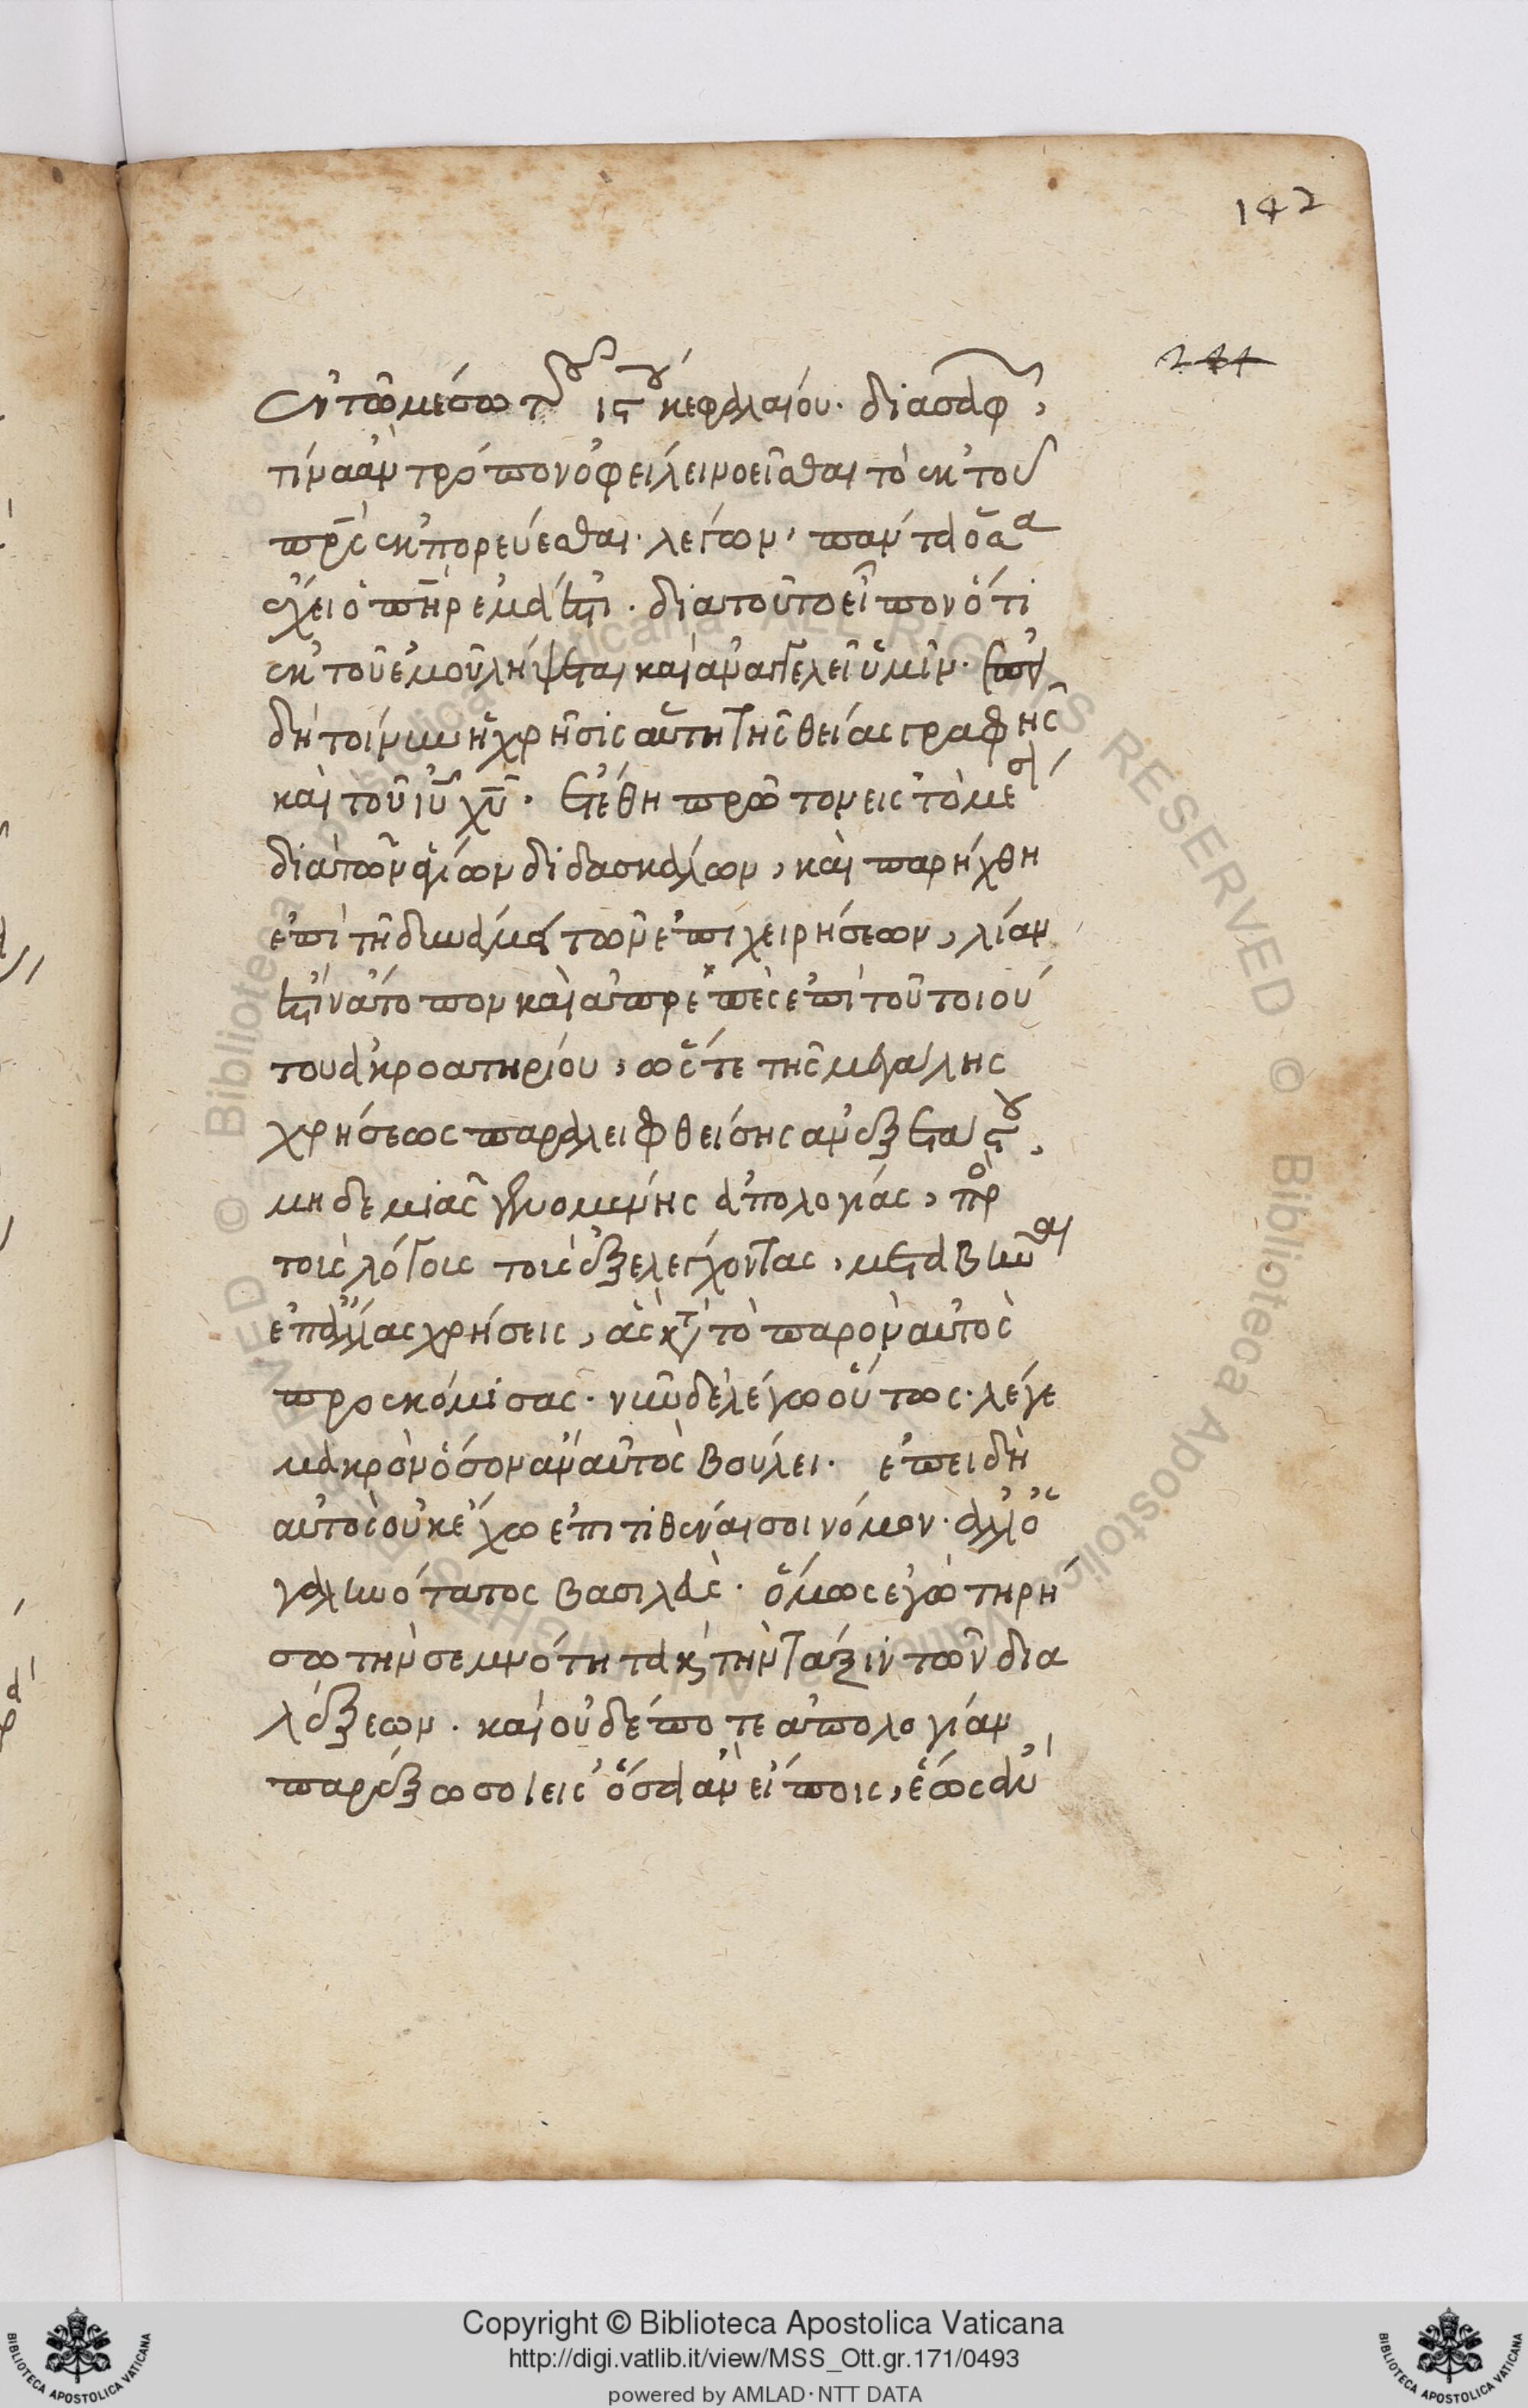 142
244
ἐν τῶ μέσω τοῦ ιϛου κεφαλαίου. διασαφῶν,
τίνα ἂν τρόπον ὀφείλει νοεῖσθαι τὸ ἐκ τοῦ
πρς ἐκπορεύεσθαι. λέγων, πάντα ὅσα
ἔχει ὁ πηρ ἐμά ἐστι. διατοῦτο εἶπον ὅτι
ἐκ τοῦ ἐμοῦ λήψεται καὶ ἀναγγελεῖ ὑμῖν. ἐπεὶ
δὴ τοίνυν ἡ χρῆσις αὕτη τῆς θείας γραφῆς
καὶ τοῦ ιυ χυ. ἐτέθη πρῶτον εἰς τὸ μέσον
διὰ τῶν ἁγίων διδασκάλων, καὶ παρήχθη
ἐπὶ τῆ δυνάμει τῶν ἐπιχειρήσεων, λίαν
ἐστὶν ἄτοπον καὶ ἀπρεπὲς ἐπὶ τοῦ τοιού
του ἀκροατηρίου, ὥστε τῆς μεγάλης
χρήσεως παραλειφθείσης ἀνεξετάστου,
μηδεμιᾶς γενομένης ἀπολογίας, πρὸς
τοὺς λόγους τοὺς ἐξελέγχοντας, μεταβῆναι
ἐπ' ἄλλας χρήσεις, ἃς κατὰ τὸ παρὸν αὐτὸς
προσκόμισας. νῦν δὲ λέγω οὕτως. λέγε
μακρὸν ὅσον ἂν αὐτὸς βούλει. ἐπειδὴ
αὐτὸς οὐκ ἔχω ἐπιτιθέναι σοι νόμον. ἀλλ' ὁ
γαληνότατος βασιλεὺς. ὅμως ἐγὼ τηρή
σω τὴν σεμνότητα κ τὴν τάξιν τῶν δια
λέξεων. καὶ οὐδέποτε ἀπολογίαν
παρέξω σοι εἰς ὅσα ἂν εἴποις, ἕως ἂν
Copyright © Biblioteca Apostolica Vaticana
http://digi.vatlib.it/view/MSS_Ott.gr.171/0493
powered by AMLAD·NTT DATA
BIBLIOTECA APOSTOLICA VATICANA
BIBLIOTECA APOSTOLICA VATICANA